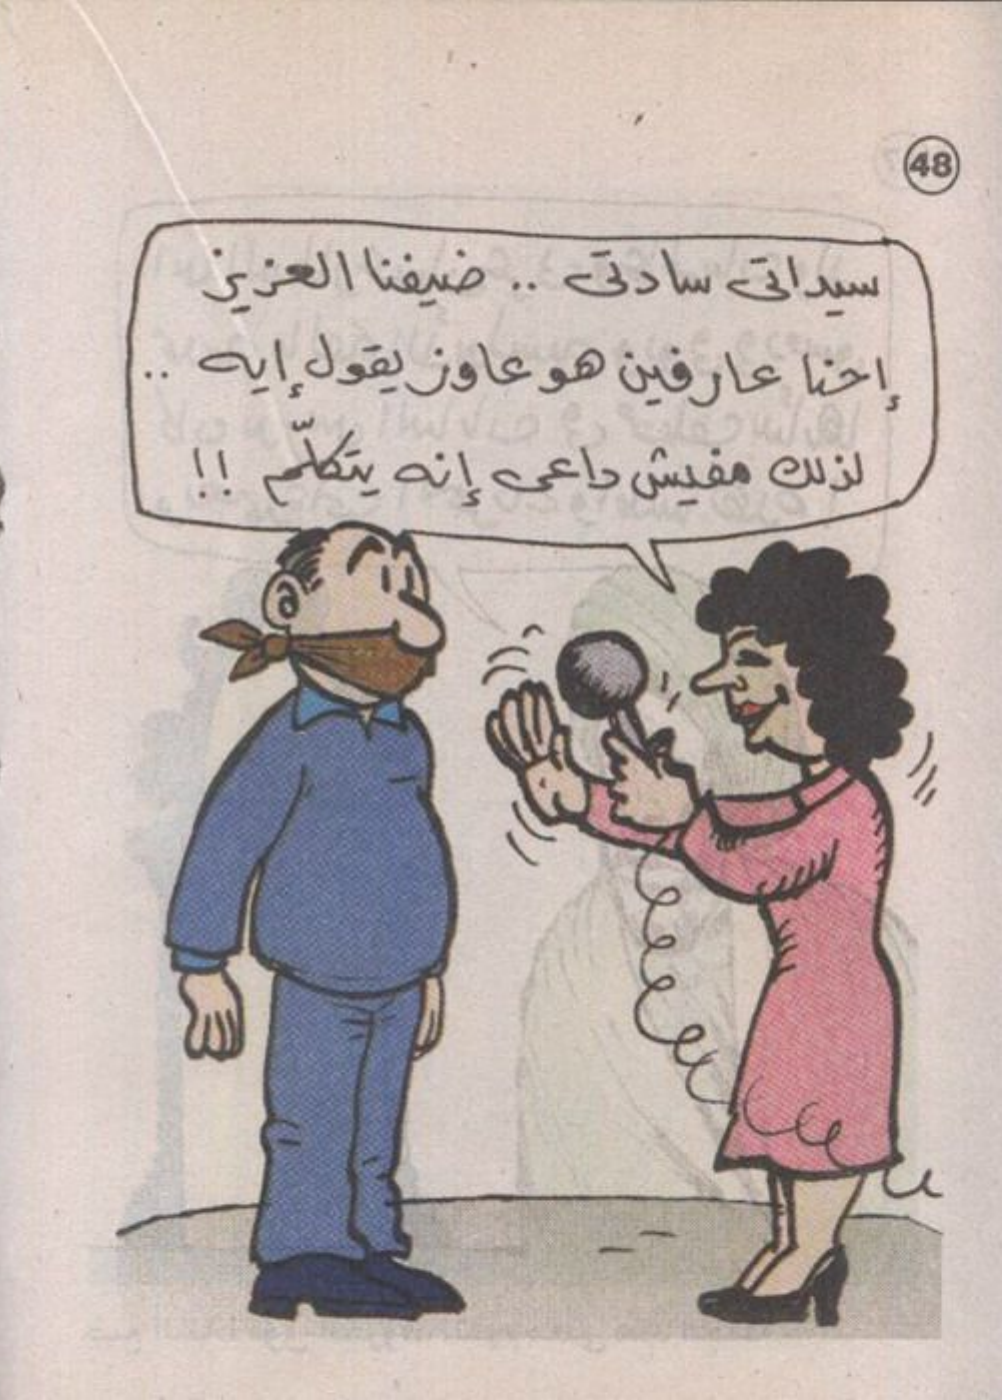 48
سيداتى سادتى .. ضيفنا العزيز
إحنا عارفين هو عاوز يقول إيه ..
لذلك مفيش داعى إنه يتكلّم !!